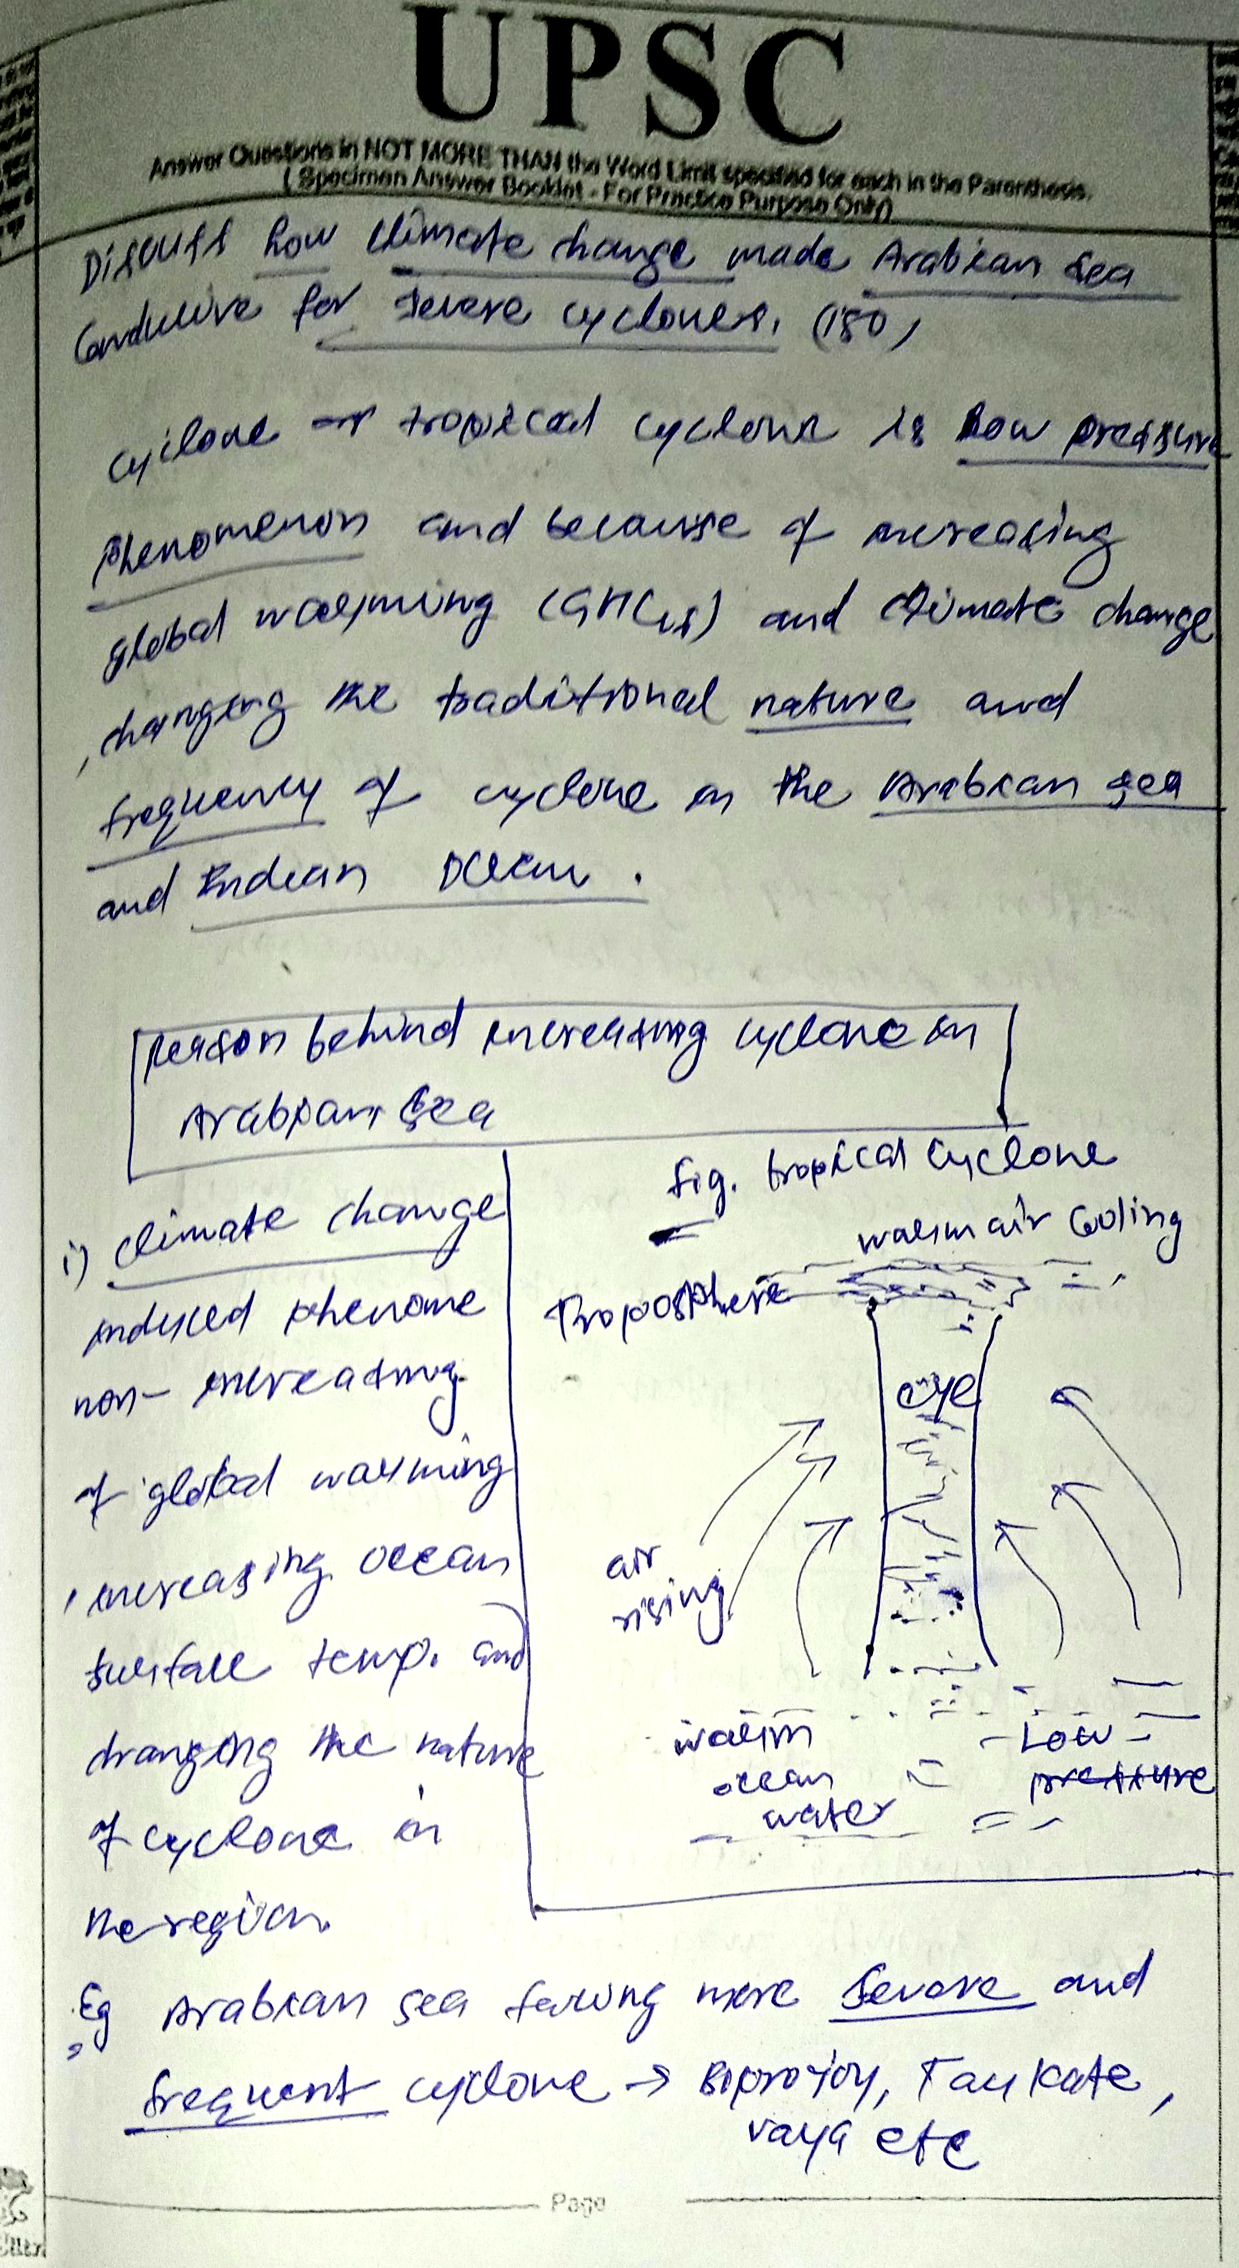 UPSC
Answer Questions in NOT MORE THAN the Word Limit specified for each in the Parenthesis.
( Specimen Answer Booklet - For Practice Purpose Only)
Discuss how climate change made Arabian Sea
Conducive for severe cyclones. (150)
cyclone → tropical cyclone is low pressure
phenomenon and because of increasing
global warming (GHGs) and climate change
changing the traditional nature and
frequency of cyclone in the Arabian sea
and Indian Ocean.
Reason behind increasing cyclone in
Arabian Sea
i) climate change
induced phenome
non- increasing
of global warming
increasing ocean
surface temp. and
changing the nature
of cyclone in
the region.
fig. tropical cyclone
warm air cooling
Troposphere
eye
air
rising
warm
ocean
water
Low
pressure
Eg Arabian sea facing more severe and
frequent cyclone → Biprojoy, Taukate,
vayu etc
Page